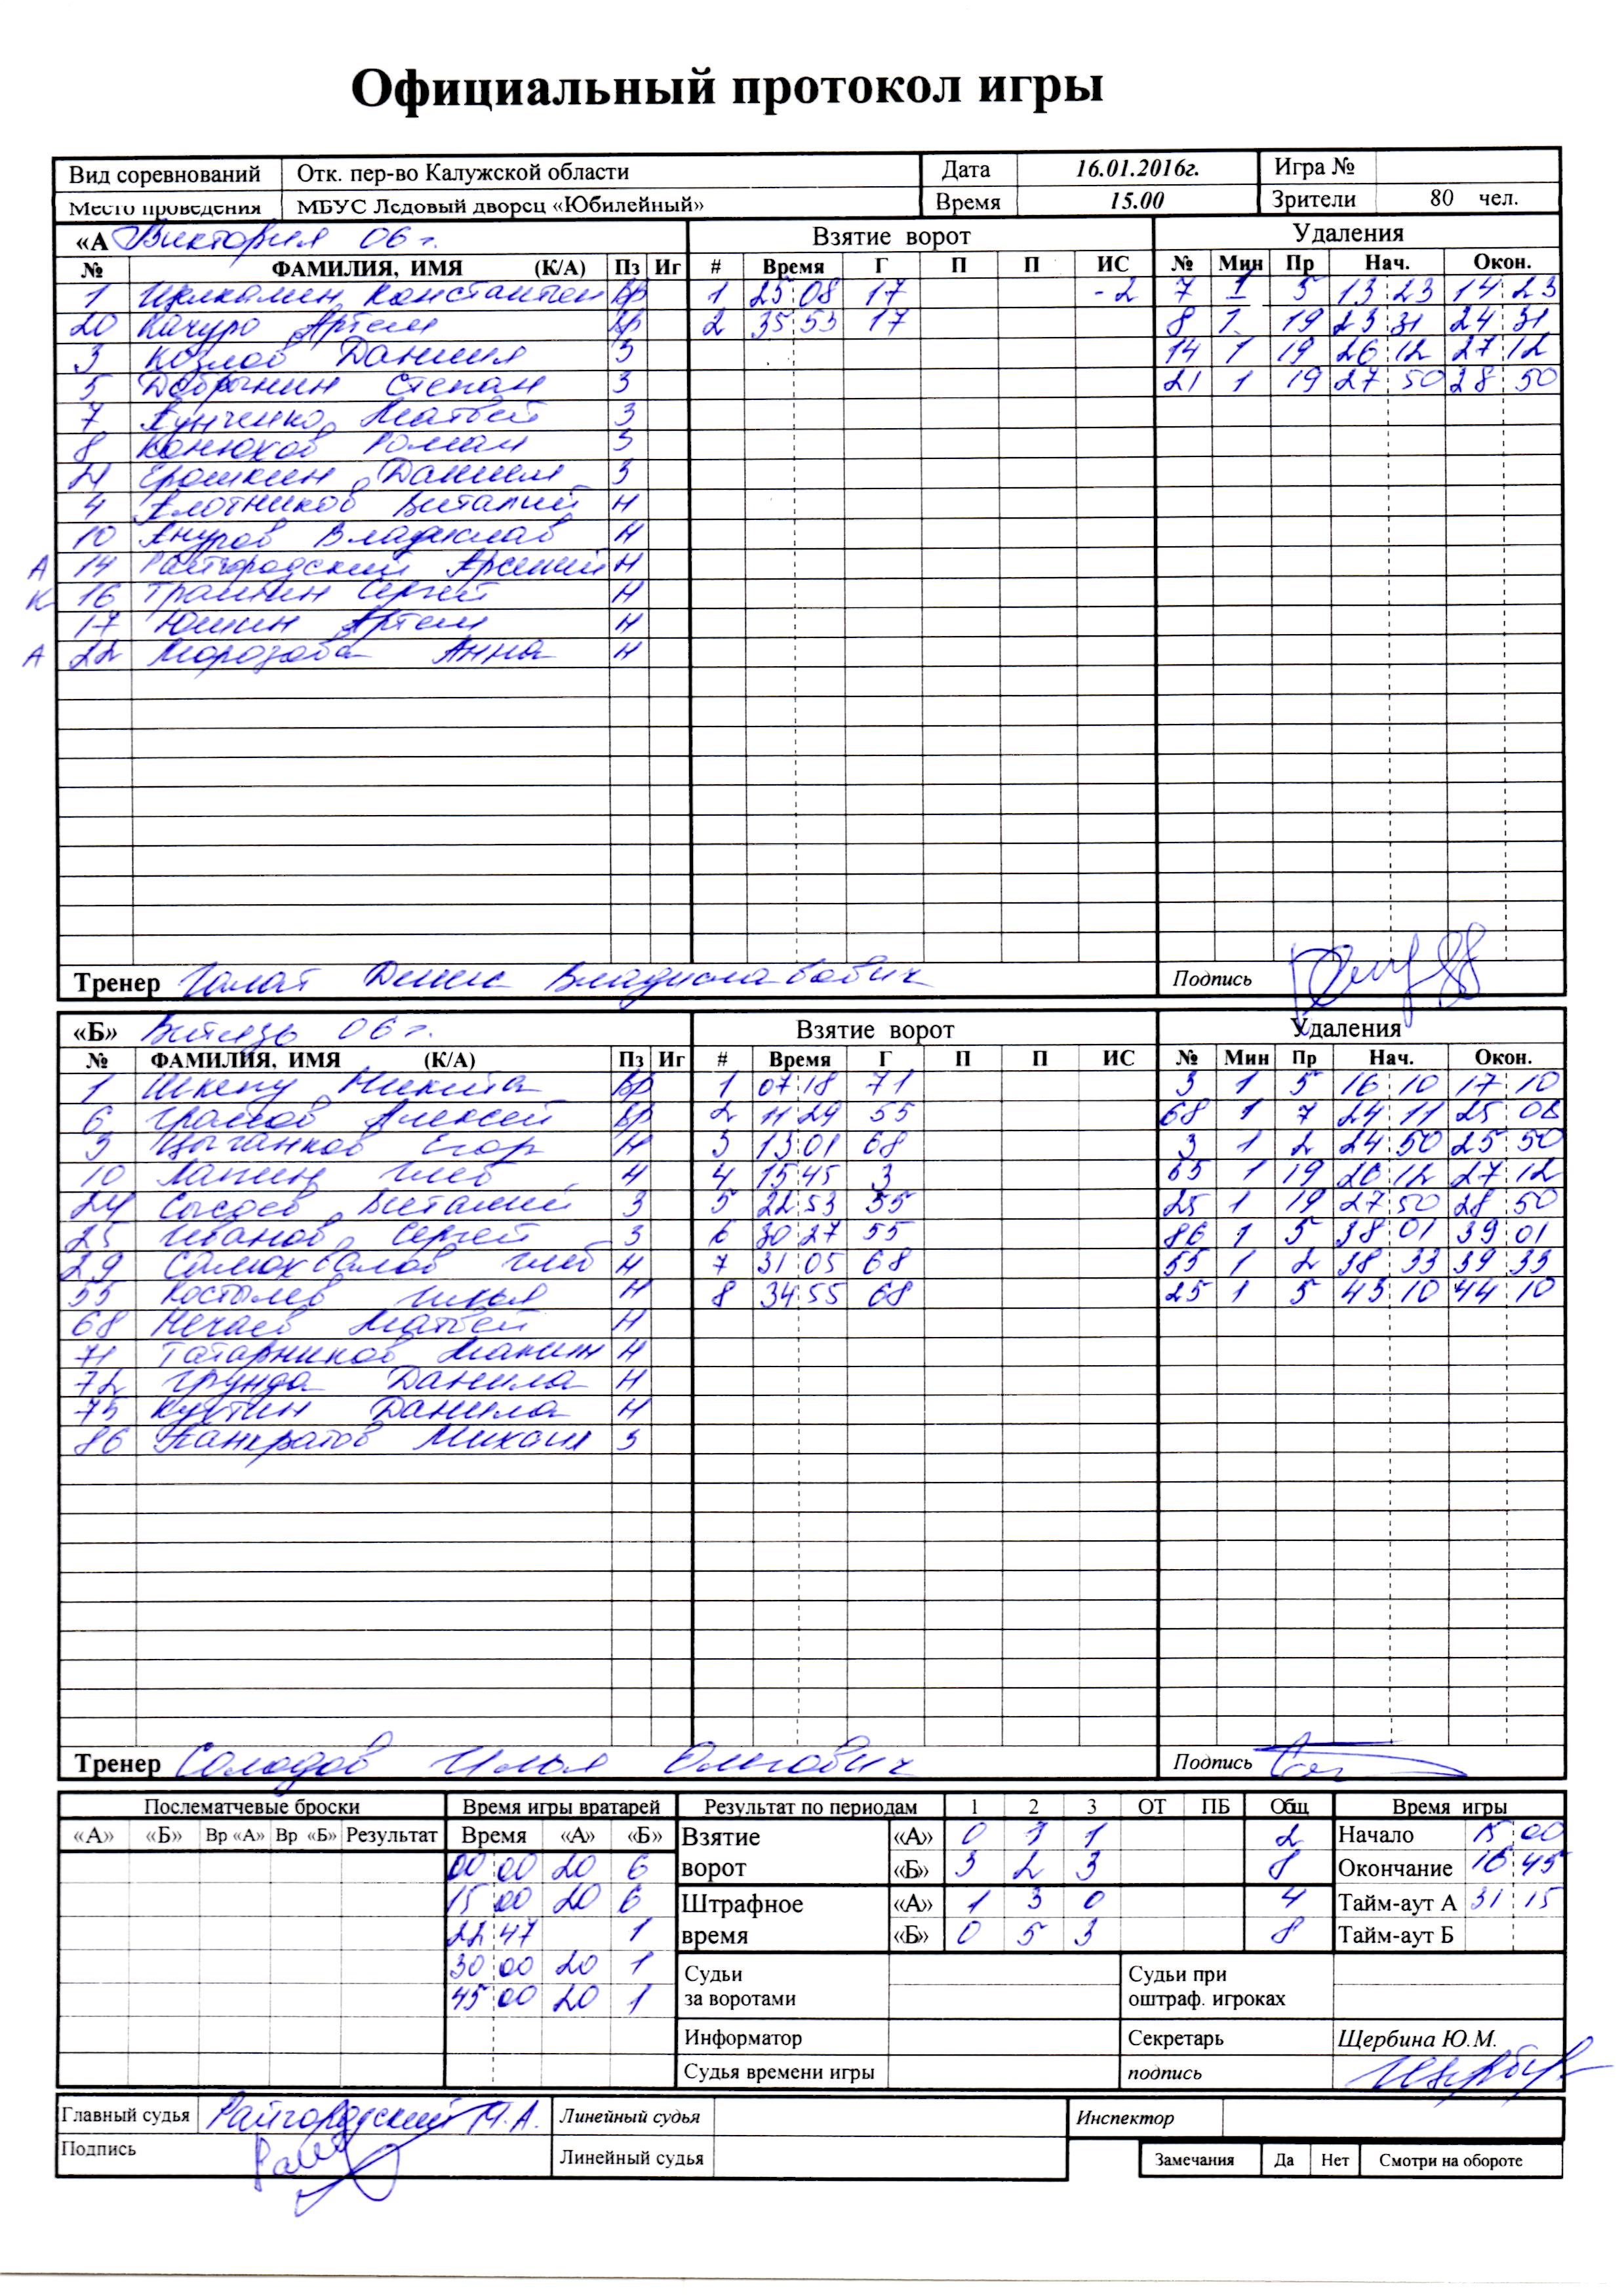 Официальный протокол игры
Вид соревнований Отк. пер-во Калужской области Дата 16.01.2016г. Игра №
Место проведения МБУС Ледовый дворец «Юбилейный» Время 15.00 Зрители 80 чел.
«А Виктория 06 г. Взятие ворот Удаления
№ ФАМИЛИЯ, ИМЯ (К/А) Пз Иг # Время Г П П ИС № Мин Пр Нач. Окон.
1 Константин Вр 1 25 08 17 -2 7 1 5 13 23 14 23
20 Качуро Артем Вр 2 35 53 17 8 1 19 23 31 24 31
3 Козлов Даниил З 14 1 19 26 12 27 12
5 Добрынин Степан З 21 1 19 27 50 28 50
7 Матвей З
8 Конюхов Роман З
21 Ерошкин Даниил З
4 Плотников Виталий Н
10 Ануров Владислав Н
А 14 Райгородский Арсений Н
К 16 Трошин Сергей Н
17 Юшин Артем Н
А 22 Морозова Анна Н
Тренер Галат Денис Владиславович Подпись
«Б» Витязь 06 г. Взятие ворот Удаления
№ ФАМИЛИЯ, ИМЯ (К/А) Пз Иг # Время Г П П ИС № Мин Пр Нач. Окон.
1 Никита Вр 1 07 18 71 3 1 5 16 10 17 10
6 Громов Алексей Вр 2 11 29 55 68 1 7 24 11 25 08
3 Цыганков Егор Н 3 13 01 68 3 1 2 24 50 25 50
10 Лапин Глеб Н 4 15 45 3 55 1 19 26 12 27 12
24 Сысоев Виталий З 5 22 53 55 25 1 19 27 50 28 50
25 Иванов Сергей З 6 30 27 55 86 1 5 38 01 39 01
29 Самохвалов Глеб Н 7 31 05 68 55 1 2 38 33 39 33
55 Костылев Илья Н 8 34 55 68 25 1 5 43 10 44 10
68 Нечаев Матвей Н
71 Татарников Максим Н
72 Грунда Данила Н
75 Кустин Данила Н
86 Панкратов Михаил З
Тренер Солодов Илья Олегович Подпись
Послематчевые броски Время игры вратарей Результат по периодам 1 2 3 ОТ ПБ Общ Время игры
«А» «Б» Вр «А» Вр «Б» Результат Время «А» «Б» Взятие «А» 0 1 1 2 Начало 15 00
00 00 20 6 ворот «Б» 3 2 3 8 Окончание 16 45
15 00 20 6 Штрафное «А» 1 3 0 4 Тайм-аут А 31 15
22 47 1 время «Б» 0 5 3 8 Тайм-аут Б
30 00 20 1 Судьи Судьи при
45 00 20 1 за воротами оштраф. игроках
Информатор Секретарь Щербина Ю.М.
Судья времени игры подпись
Главный судья Райгородский М.А. Линейный судья Инспектор
Подпись Линейный судья Замечания Да Нет Смотри на обороте